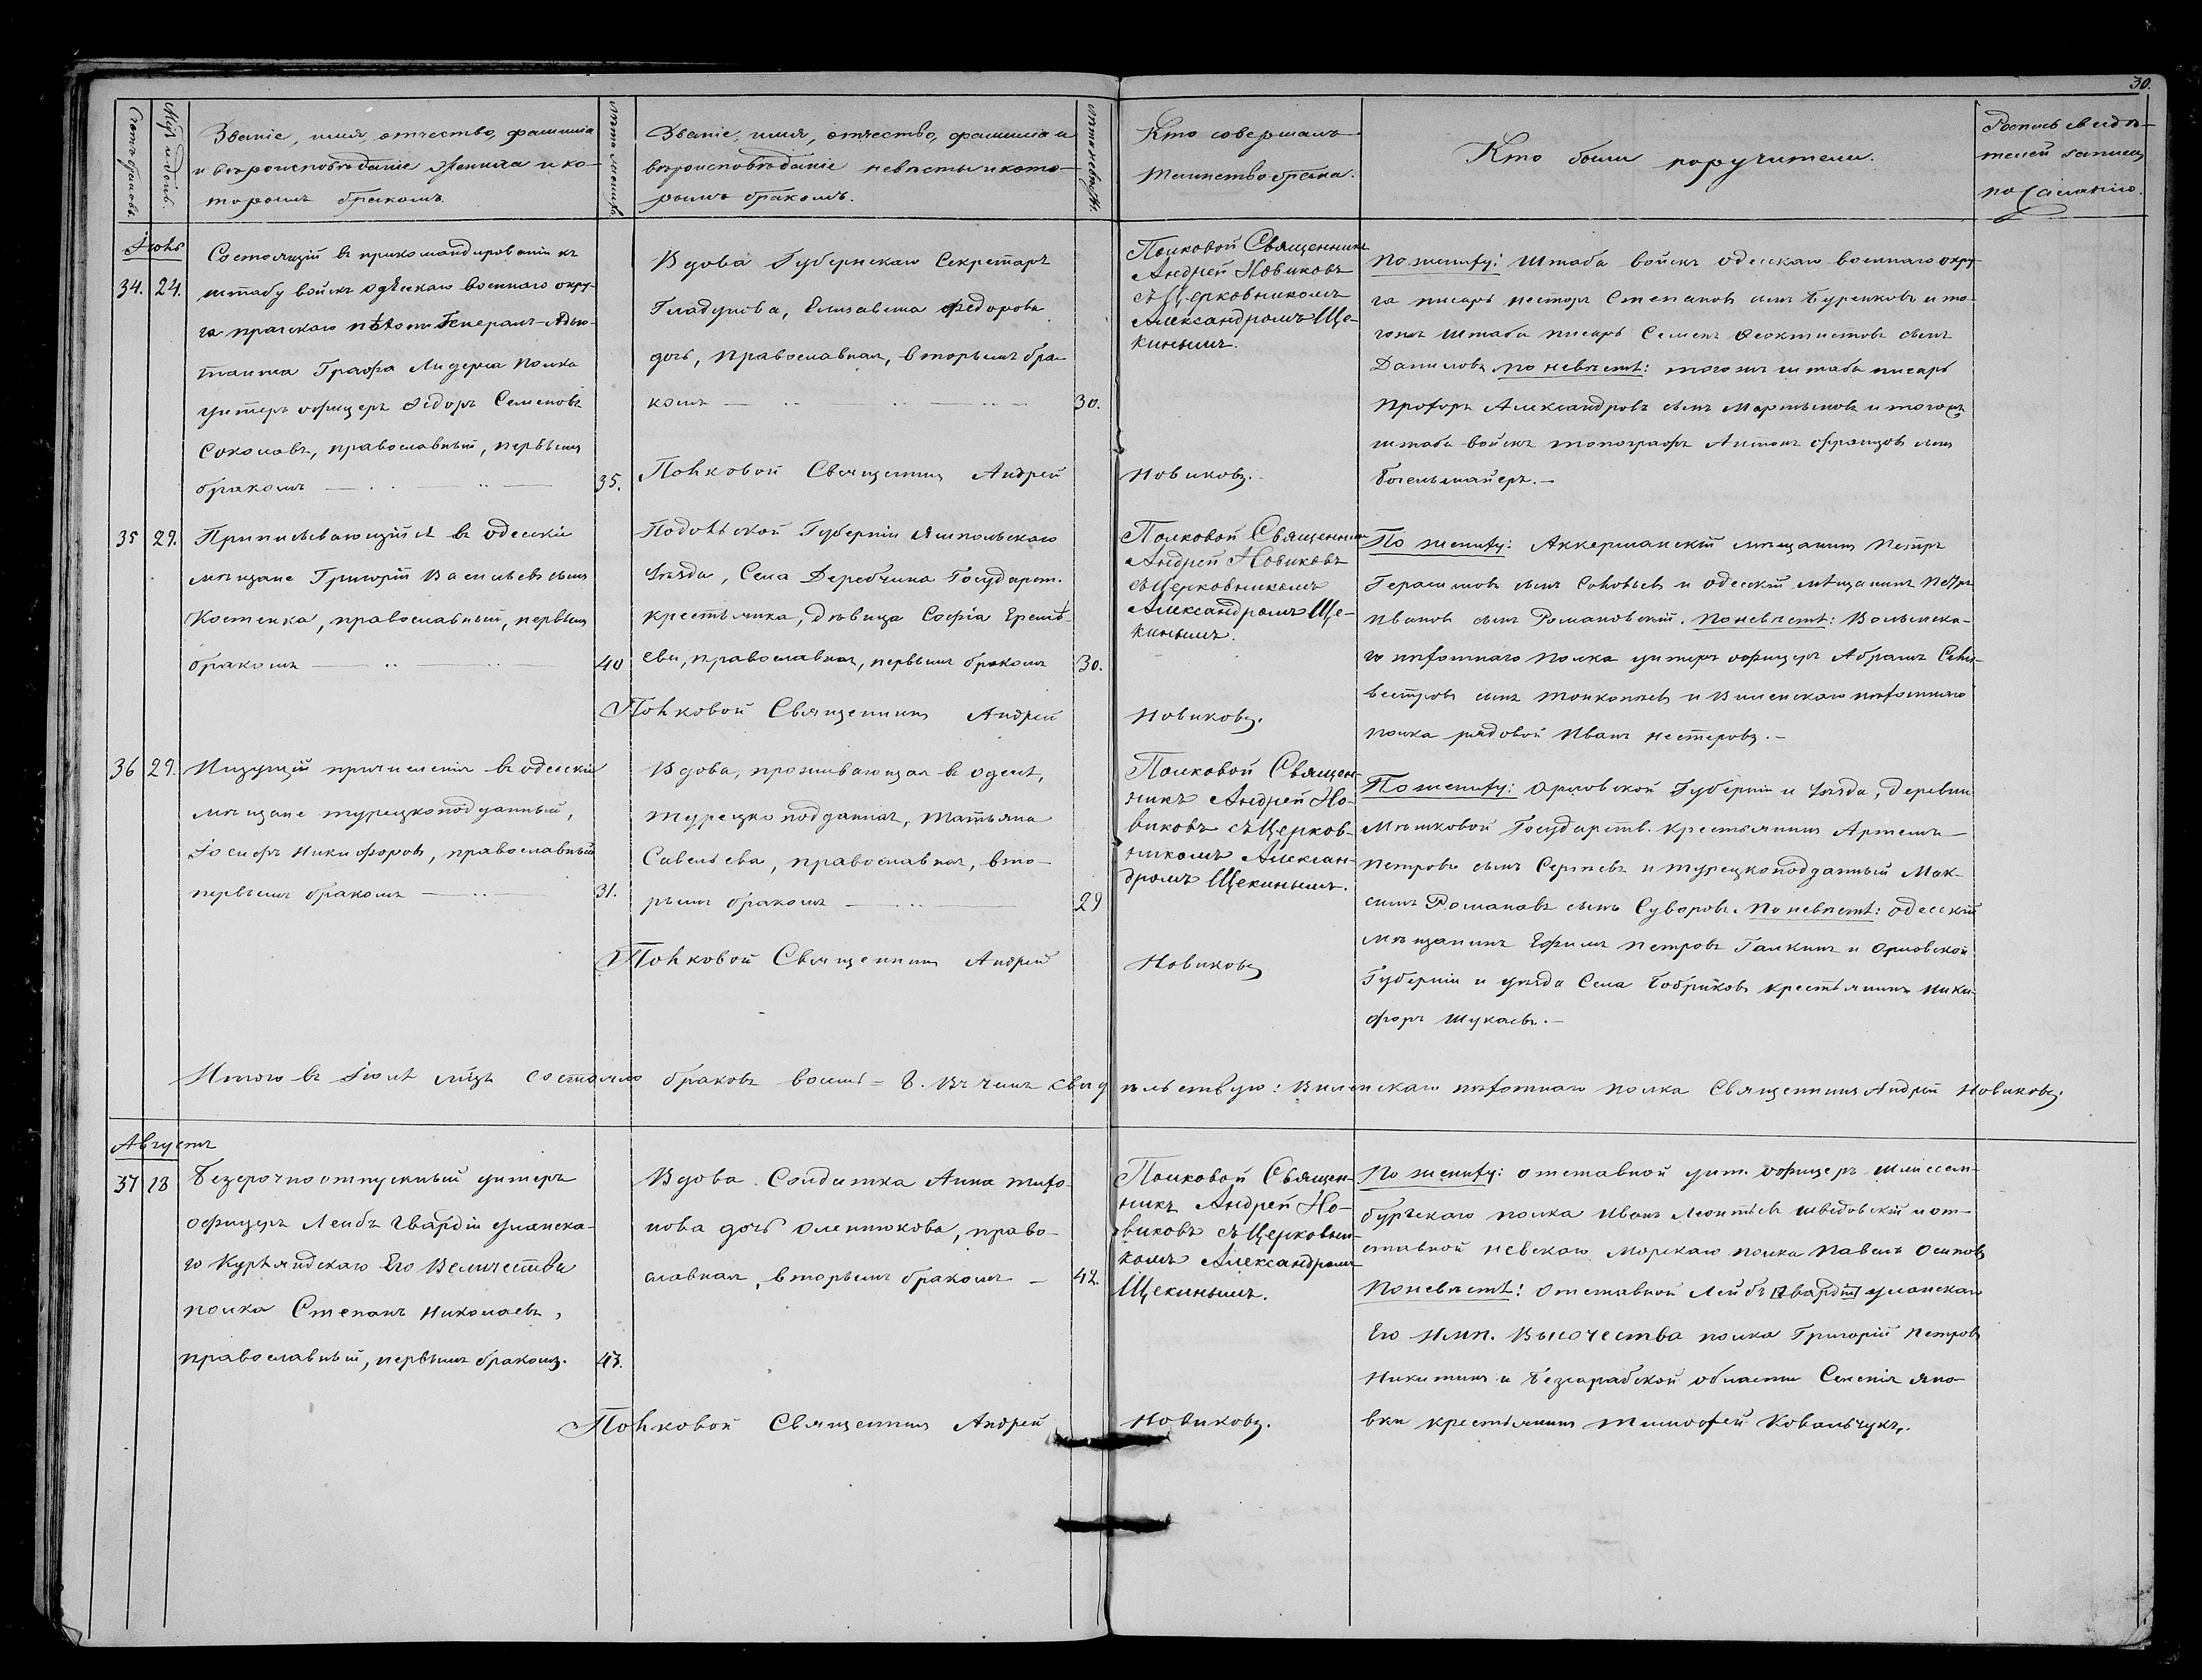 30.
Счетъ браковъ.
Мѣс. и день.
Званіе, имя, отчество, фамилія
и вѣроисповѣданіе жениха и ко-
торымъ бракомъ.
Лѣта жениха.
Званіе, имя, отчество, фамилія и
вѣроисповѣданіе невѣсты и кото-
рымъ бракомъ.
Лѣта невѣсты.
Кто совершалъ
таинство брака.
Кто были поручители.
Роспись свидѣ-
телей записи
по желанію.
Іюль
34. 24.
Состоящій въ прикомандированіи къ
штабу войскъ одесскаго военнаго окру-
га пражскаго пѣхот. Генералъ-Адъю-
танта Графа Лидерса полка
унтеръ офицеръ Ѳедоръ Семеновъ
Соколовъ, православный, первымъ
бракомъ
35.
Вдова Губернскаго Секретаря
Гладунова, Елисавета Ѳедорова
дочь, православная, вторымъ бра-
комъ
30.
Полковой Священникъ
Андрей Новиковъ
съ Церковникомъ
Александромъ Ще-
кинымъ.
По жениху: Штаба войскъ одесскаго военнаго окру-
га писарь Несторъ Степановъ сынъ Буренковъ и то-
гожъ штаба писарь Семенъ Ѳеоктистовъ сынъ
Даниловъ, по невѣстѣ: тогожъ штаба писарь
Прохоръ Александровъ сынъ Мартыновъ и тогожъ
штаба войскъ топографъ Антонъ Францовъ сынъ
Богельмайеръ.—
Полковой Священникъ Андрей Новиковъ.
35 29.
Приписывающійся въ одесскіе
мѣщане Григорій Васильевъ сынъ
Костенка, православный, первымъ
бракомъ
40
Подольской Губерніи Ямпольскаго
Уѣзда, Села Деребчина Государст.
крестьянка, дѣвица Софія Еремѣ-
ева, православная, первымъ бракомъ
30.
Полковой Священникъ
Андрей Новиковъ
съ Церковникомъ
Александромъ Ще-
кинымъ.
По жениху: Аккерманскій мѣщанинъ Петръ
Герасимовъ сынъ Соловьевъ и одесскій мѣщанинъ Петръ
Ивановъ сынъ Романовскій. По невѣстѣ: Волынска-
го пѣхотнаго полка унтеръ офицеръ Абрамъ Силь-
вестровъ сынъ Тонкопѣевъ и Виленскаго пѣхотнаго
полка рядовой Иванъ Нестеровъ.—
Полковой Священникъ Андрей Новиковъ.
36 29.
Ищущій причисленія въ одесскіе
мѣщане турецкоподданный,
Іосифъ Никифоровъ, православный
первымъ бракомъ
31.
Вдова, проживающая въ Одессѣ,
турецко подданная, Татьяна
Савельева, православная, вто-
рымъ бракомъ
29
Полковой Священ-
никъ Андрей Но-
виковъ съ Церков-
никомъ Алексан-
дромъ Щекинымъ.
По жениху: Орловской Губерніи и Уѣзда, деревни
Мѣшковой Государств. крестьянинъ Артемъ
Петровъ сынъ Сергѣевъ и турецкоподданный Мак-
симъ Романовъ сынъ Суворовъ. По невѣстѣ: одесскій
мѣщанинъ Ефимъ Петровъ Галкинъ и Орловской
Губерніи и уѣзда Села Бобриковъ крестьянинъ Ники-
форъ Шукаевъ.—
Полковой Священникъ Андрей Новиковъ
Итого въ Іюлѣ мѣсяцѣ состоялось браковъ восемь = 8. Въ чемъ свидѣтельствую: Виленскаго пѣхотнаго полка Священникъ Андрей Новиковъ.
Августъ
37 18
Безсрочноотпускный унтеръ
офицеръ Лейбъ Гвардіи уланска-
го Курляндскаго Его Величества
полка Степанъ Николаевъ,
православный, первымъ бракомъ.
43.
Вдова Солдатка Анна Тихо-
нова дочь Оленюкова, право-
славная, вторымъ бракомъ
42.
Полковой Священ-
никъ Андрей Но-
виковъ съ Церковни-
комъ Александромъ
Щекинымъ.
По жениху: отставной унт. офицеръ Шлиссель-
бургскаго полка Иванъ Леонтьевъ Шведовскій и от-
ставной Невскаго Морскаго полка Павелъ Осиповъ
По невѣстѣ: отставной Лейбъ [Гвардіи] уланскаго
Его Имп. Высочества полка Григорій Петровъ
Никитинъ и Бессарабской области Селенія Яно-
вки крестьянинъ Тимоѳей Ковальчукъ.
Полковой Священникъ Андрей Новиковъ.